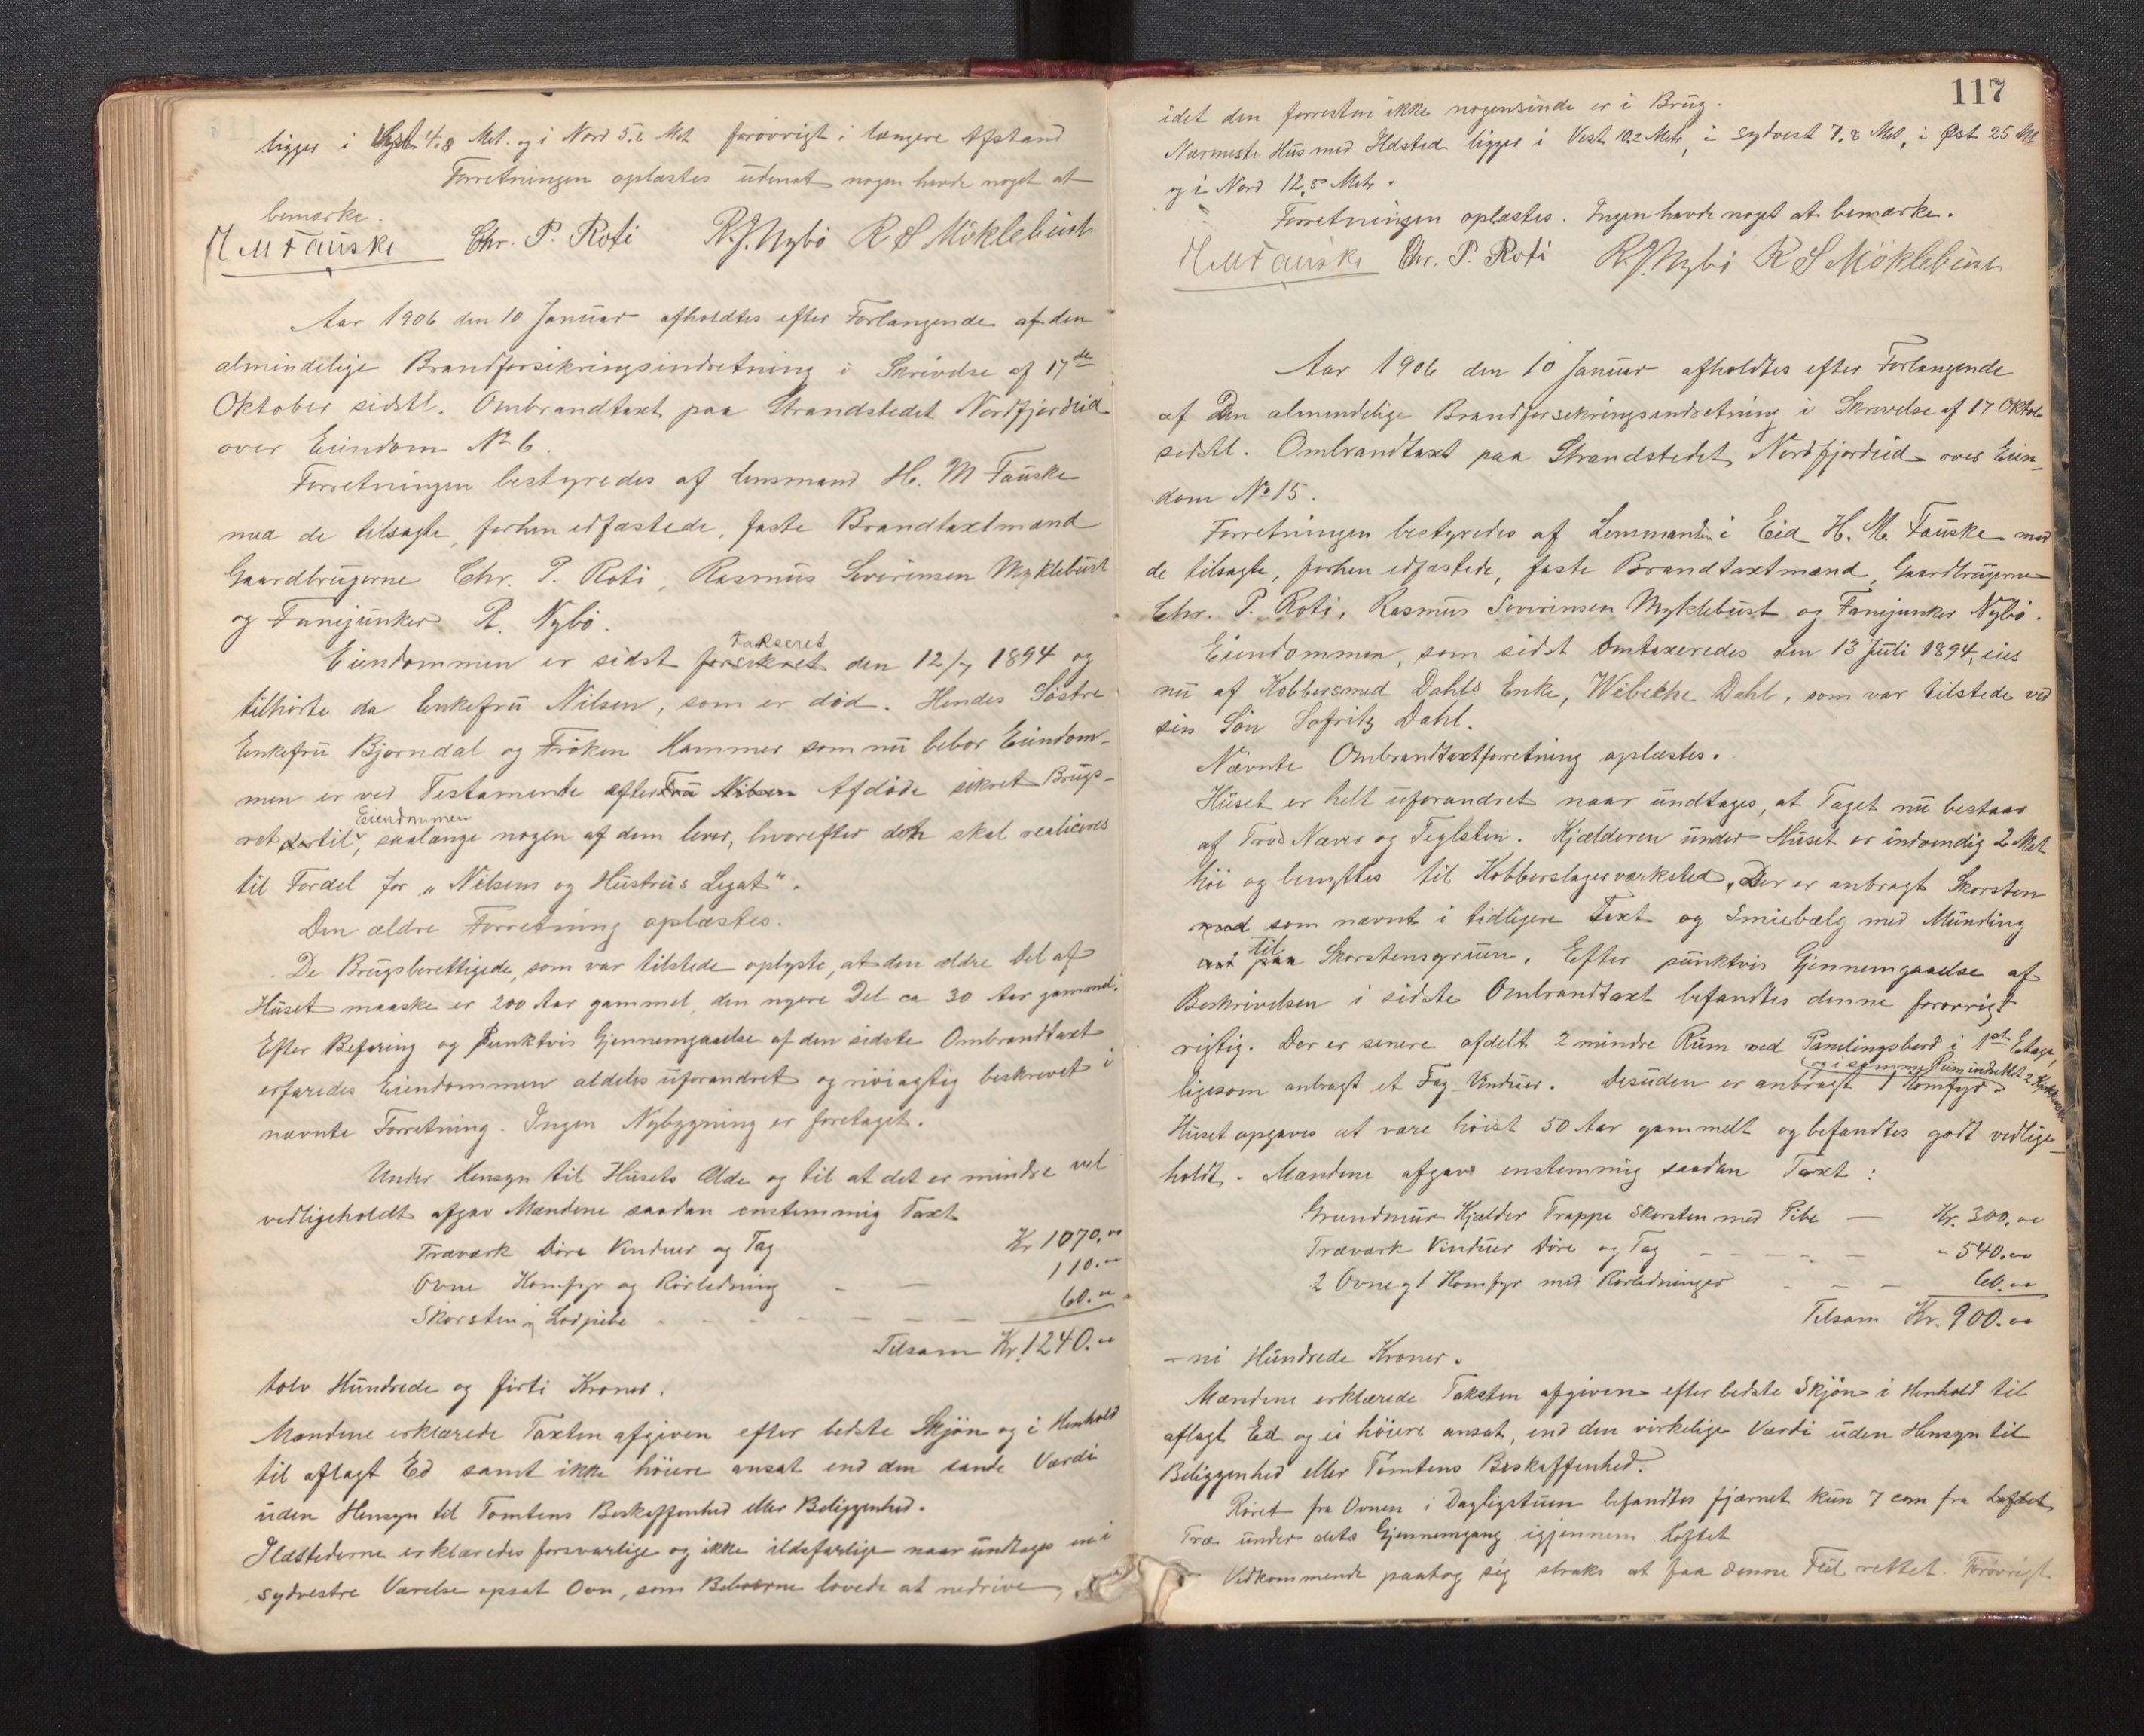 ligger i 4,8 Met. og i Nord 5,6 Met forøvrigt i længere Afstand
Forretningen oplæstes uden at nogen havde noget at
bemærke.
H M Fauske Chr. P. Roti R. J. Nybö R S Möklebust
Aar 1906 den 10 Januar afholdtes efter Forlangende af den
almindelige Brandforsikringsindretning i Skrivelse af 17de
Oktober sidstl. Ombrandtaxt paa Strandstedet Nordfjordeid
over Eiendom No 6.
Forretningen bestyredes af Lensmand H. M Fauske
med de tilsagte, forhen edfæstede, faste Brandtaxtmænd
Gaardbrugerne Chr. P. Roti, Rasmus Severinsen Myklebust
og Fanejunker R. Nybö.
Eiendommen er sidst forsikret takseret den 12/7 1894 og
tilhørte da Enkefru Nilsen, som er död. Hendes Söstre
Enkefru Bjørndal og Fröken Hammer som nu bebor Eiendom-
men er ved Testamente efter Fru Nilsen Afdöde sikret Brugs-
ret dertil Eiendommen, saalænge nogen af dem lever, hvorefter den skal realiceres
til Fordel for „Nilsens og Hustrus Legat".
Den ældre Forretning oplæstes.
De Brugsberettigede, som var tilstede oplyste, at den ældre Del af
Huset maaske er 200 Aar gammel, den nyere Del ca 30 Aar gammel.
Efter Befaring og punktvis Gjennemgaaelse af den sidste Ombrandtaxt
erfaredes Eiendommen aldeles uforandret og rigtig beskrevet i
nævnte Forretning. Ingen Nybygning er foretaget.
Under Hensyn til Husets Ælde og til at det er mindre vel
vedligeholdt afgav Mændene saadan enstemmig Taxt
Træværk Döre Vinduer og Tag Kr 1070.00
Ovne Komfyr og Rörledning - - 110.00
Skorsten og Lodpibe - - - - - - 60.00
Tilsam Kr. 1240.00
tolv Hundrede og firti Kroner.
Mændene erklærede Taxten afgiven efter bedste Skjön og i Henhold
til aflagt Ed samt ikke höiere ansat end den sande Værdi
uden Hensyn til Tomtens Beskaffenhed eller Beliggenhed.
Ildstederne erklæredes forsvarlige og ikke ildsfarlige naar undtages en i
sydvestre Værelse opsat Ovn, som Beboerne lovede at nedrive
117
idet den forresten ikke nogensinde er i Brug.
Nærmeste Hus med Ildsted ligger i Vest 10,2 Metr, i sydvest 7,8 Met, i Øst 25 Mt
og i Nord 12,5 Metr.
Forretningen oplæstes. Ingen havde noget at bemærke.
H M Fauske Chr. P. Roti R. J. Nybö R S Möklebust
Aar 1906 den 10 Januar afholdtes efter Forlangende
af Den almindelige Brandforsikringsindretning i Skrivelse af 17 Oktob
sidstl. Ombrandtaxt paa Strandstedet Nordfjordeid over Eien-
dom No 15.
Forretningen bestyredes af Lensmanden i Eid H. M. Fauske med
de tilsagte, forhen edfæstede, faste Brandtaxtmænd, Gaardbrugerne
Chr. P. Roti, Rasmus Severinsen Myklebust og Fanejunker Nybö.
Eiendommen, som sidst omtaxeredes den 13 Juli 1894, eies
nu af Kobbersmed Dahls Enke, Wibeche Dahl, som var tilstede ved
sin Sön Sofritz Dahl.
Nævnte Ombrandtaxtforretning oplæstes.
Huset er helt uforandret naar undtages, at Taget nu bestaar
af Trod Næver og Teglsten. Kjælderen under Huset er indvendig 2 Met
höi og benyttes til Kobberslagerværksted. Der er anbragt Skorsten
med som nævnt i tidligere Taxt og Smiebælg med Munding
paa til Skorstensgruen. Efter punktvis Gjennemgaaelse af
Beskrivelsen i sidste Ombrandtaxt befandtes denne forøvrigt
rigtig. Der er senere afdelt 2 mindre Rum ved Panelingsbord i 1ste Etage,
ligesom anbragt et Fag Vinduer. Desuden er anbragt 1 Komfyr og i samme Rum indrettet 2
Huset opgaves at være höist 50 Aar gammelt og befandtes godt vedlige-
holdt. Mændene afgav enstemmig saadan Taxt:
Grundmur Kjælder Trappe Skorsten med Pibe — Kr. 300.00
Træværk Vinduer Döre og Tag - - - - - - 540.00
2 Ovne og 1 Komfyr med Rörledninger - - - 60.00
Tilsam Kr. 900.00
- ni Hundrede Kroner.
Mændene erklærede Taksten afgiven efter bedste Skjön i Henhold til
aflagt Ed og ei höiere ansat, end den virkelige Værdi uden Hensyn til
Beliggenhed eller Tomtens Beskaffenhed.
Röret fra Ovnen i Dagligstuen befandtes fjærnet kun 7 cm fra Loftet
Træ under dets Gjennemgang igjennem Loftet
Vedkommende paatog sig straks at faa denne Feil rettet. Forøvrigt